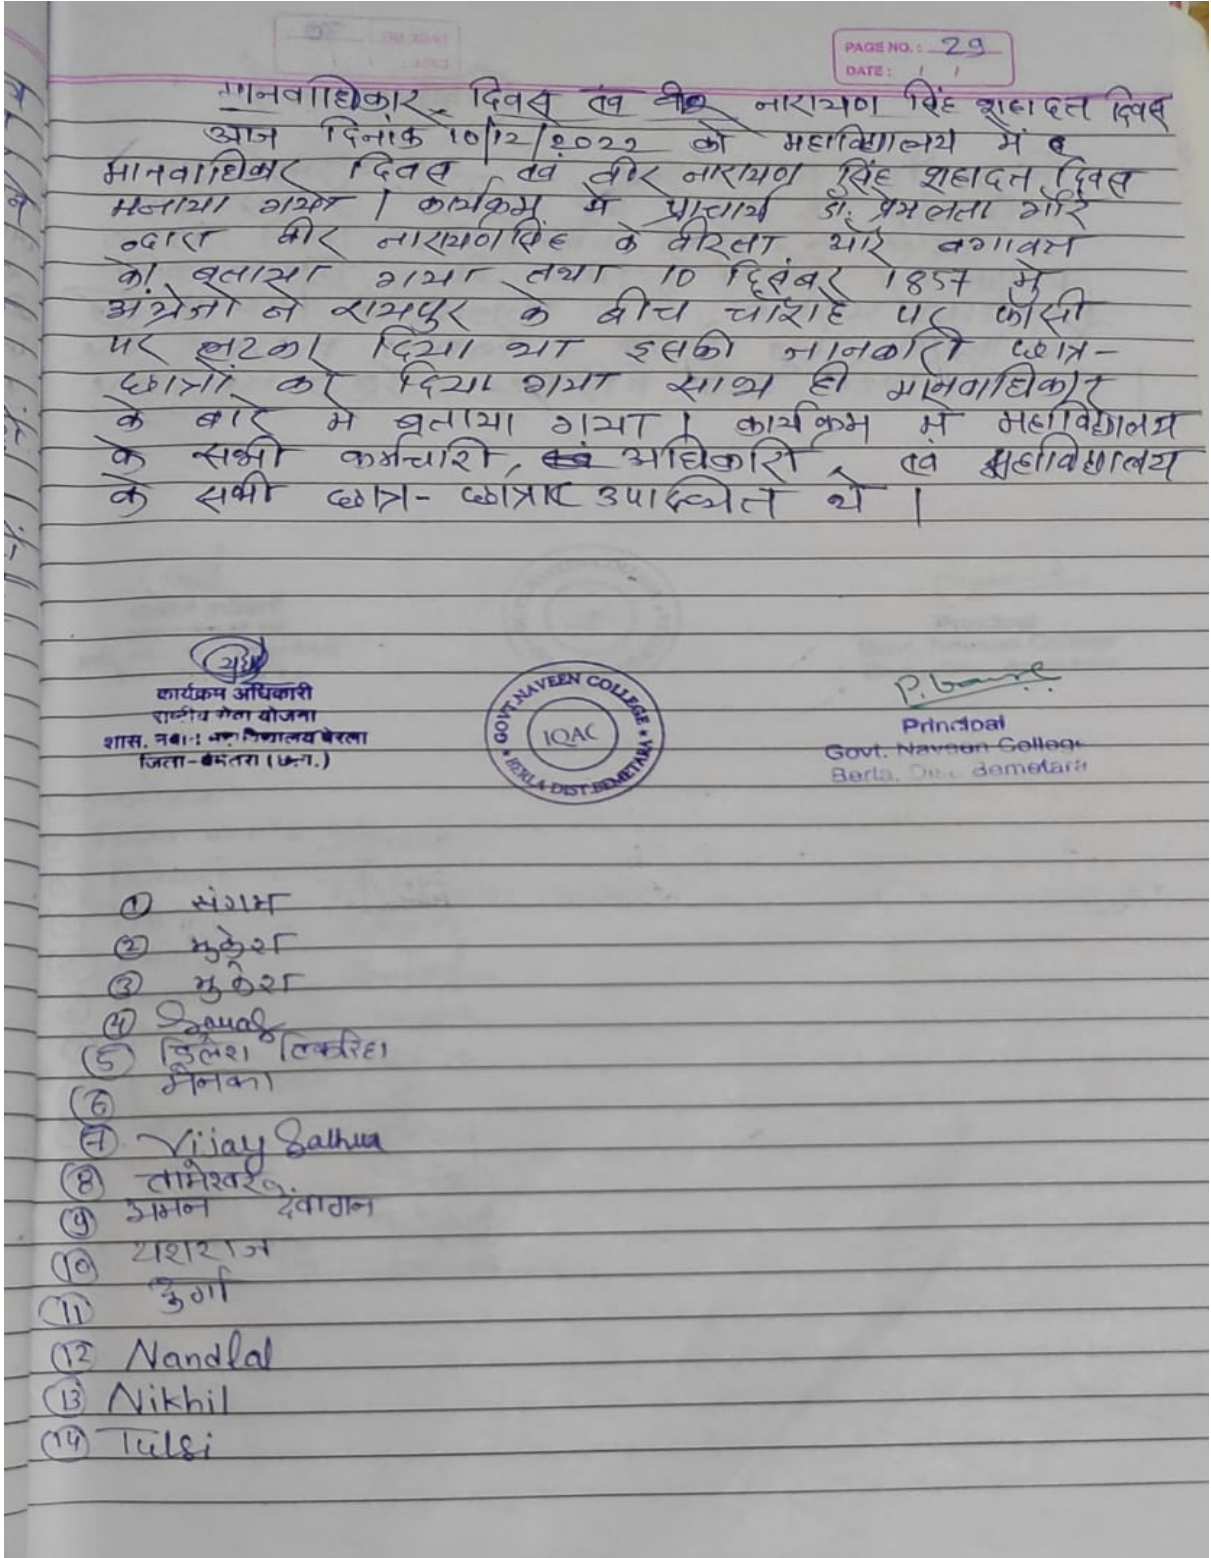 PAGE NO.: 29
DATE: / /
मानवाधिकार दिवस एवं वीर नारायण सिंह शहादत दिवस
आज दिनांक 10/12/2022 को महाविद्यालय में
मानवाधिकार दिवस एवं वीर नारायण सिंह शहादत दिवस
मनाया गया। कार्यक्रम में प्राचार्य डॉ. प्रेमलता गौरे
द्वारा वीर नारायण सिंह के वीरता और बगावत
को बताया गया तथा 10 दिसंबर 1857 में
अंग्रेजों ने रायपुर के बीच चौराहे पर फाँसी
पर लटका दिया था इसकी जानकारी छात्र-
छात्रों को दिया गया साथ ही मानवाधिकार
के बारे में बताया गया। कार्यक्रम में महाविद्यालय
के सभी कर्मचारी, अधिकारी, एवं महाविद्यालय
के सभी छात्र-छात्राए उपस्थित थे।
कार्यक्रम अधिकारी
राष्ट्रीय सेवा योजना
शास. नवीन महाविद्यालय बेरला
जिला-बेमेतरा (छ.ग.)
GOVT. NAVEEN COLLEGE
IQAC
BERLA DIST. BEMETARA
Principal
Govt. Naveen College
Berla, Dist. Bemetara
① संगम
② मुकेश
③ मुकेश
④
⑤ डिलेश टिकरिहा
⑥ मेनका
⑦ Vijay Sathua
⑧ तामेश्वर
⑨ अमन देवांगन
⑩ यशराज
⑪ दुर्गा
⑫ Nandlal
⑬ Nikhil
⑭ Tulsi